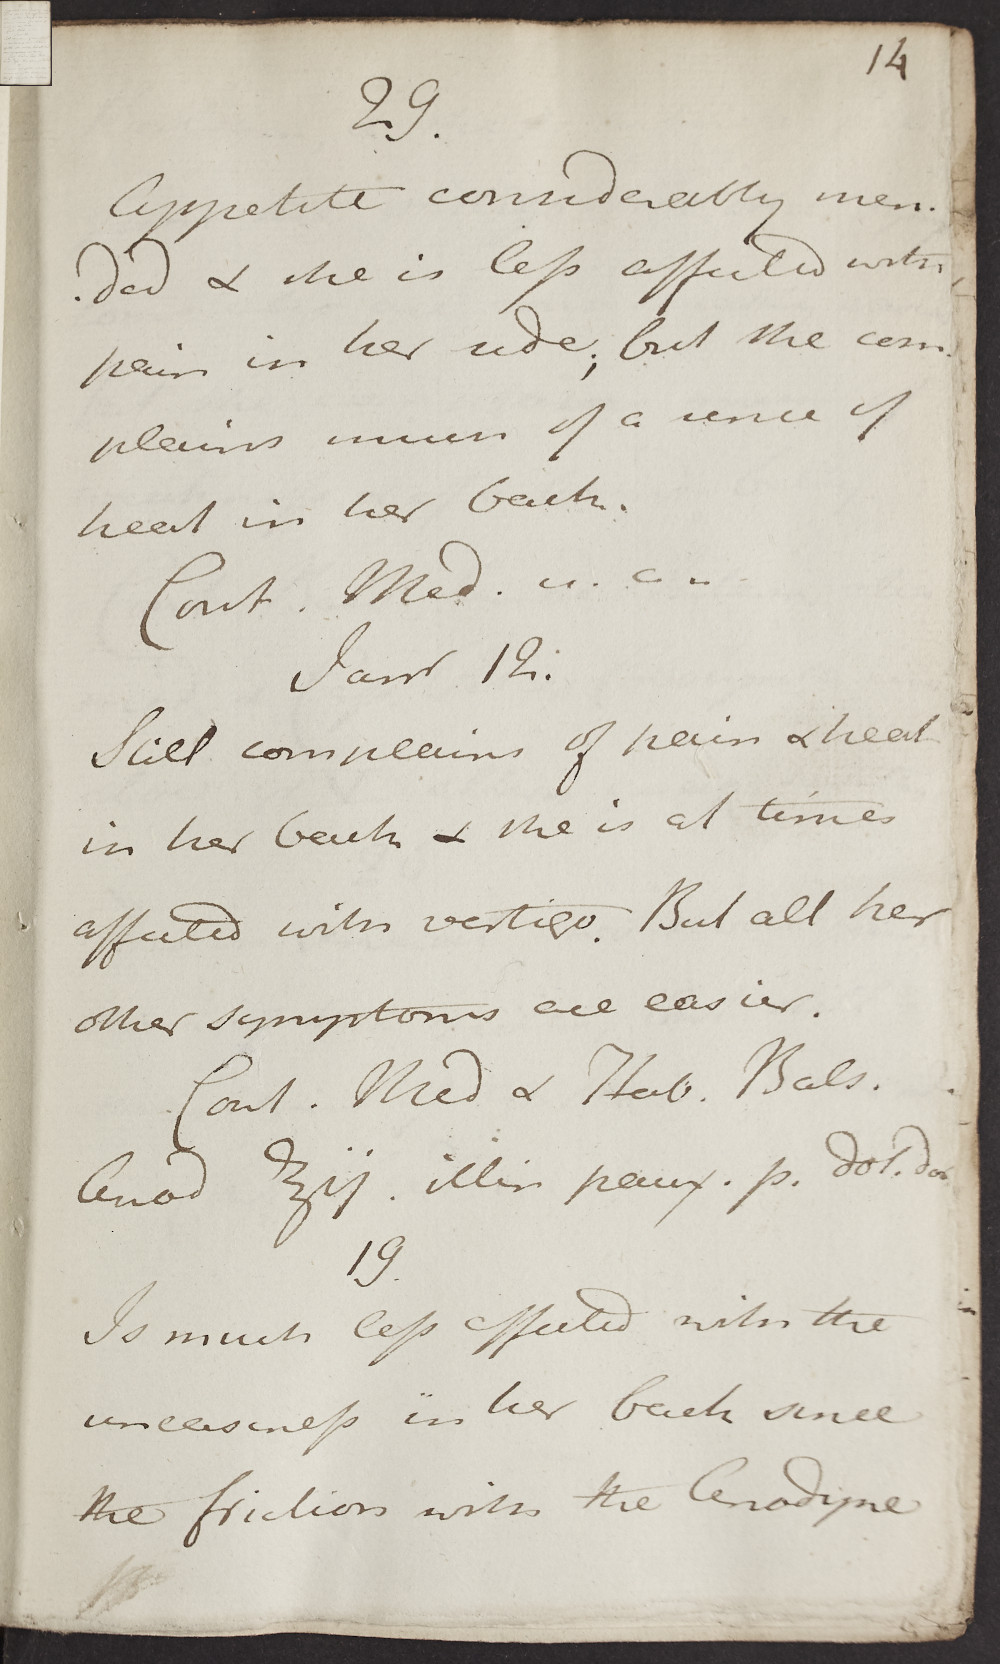 14
29.
Appetite considerably men-
-ded & she is less affected with
pain in her side; but she com-
plains much of a sence of
heat in her back.
Cont. Med.
Janr 12.
Still complains of pain & heat
in her back & she is at times
affected with vertigo. But all her
other symptoms are easier.
Cont. Med & Hab. Bals.
Anod ℥ij. illin paux. p. dol. dor
19.
Is much less affected with the
uneasiness in her back since
the friction with the Anodyne